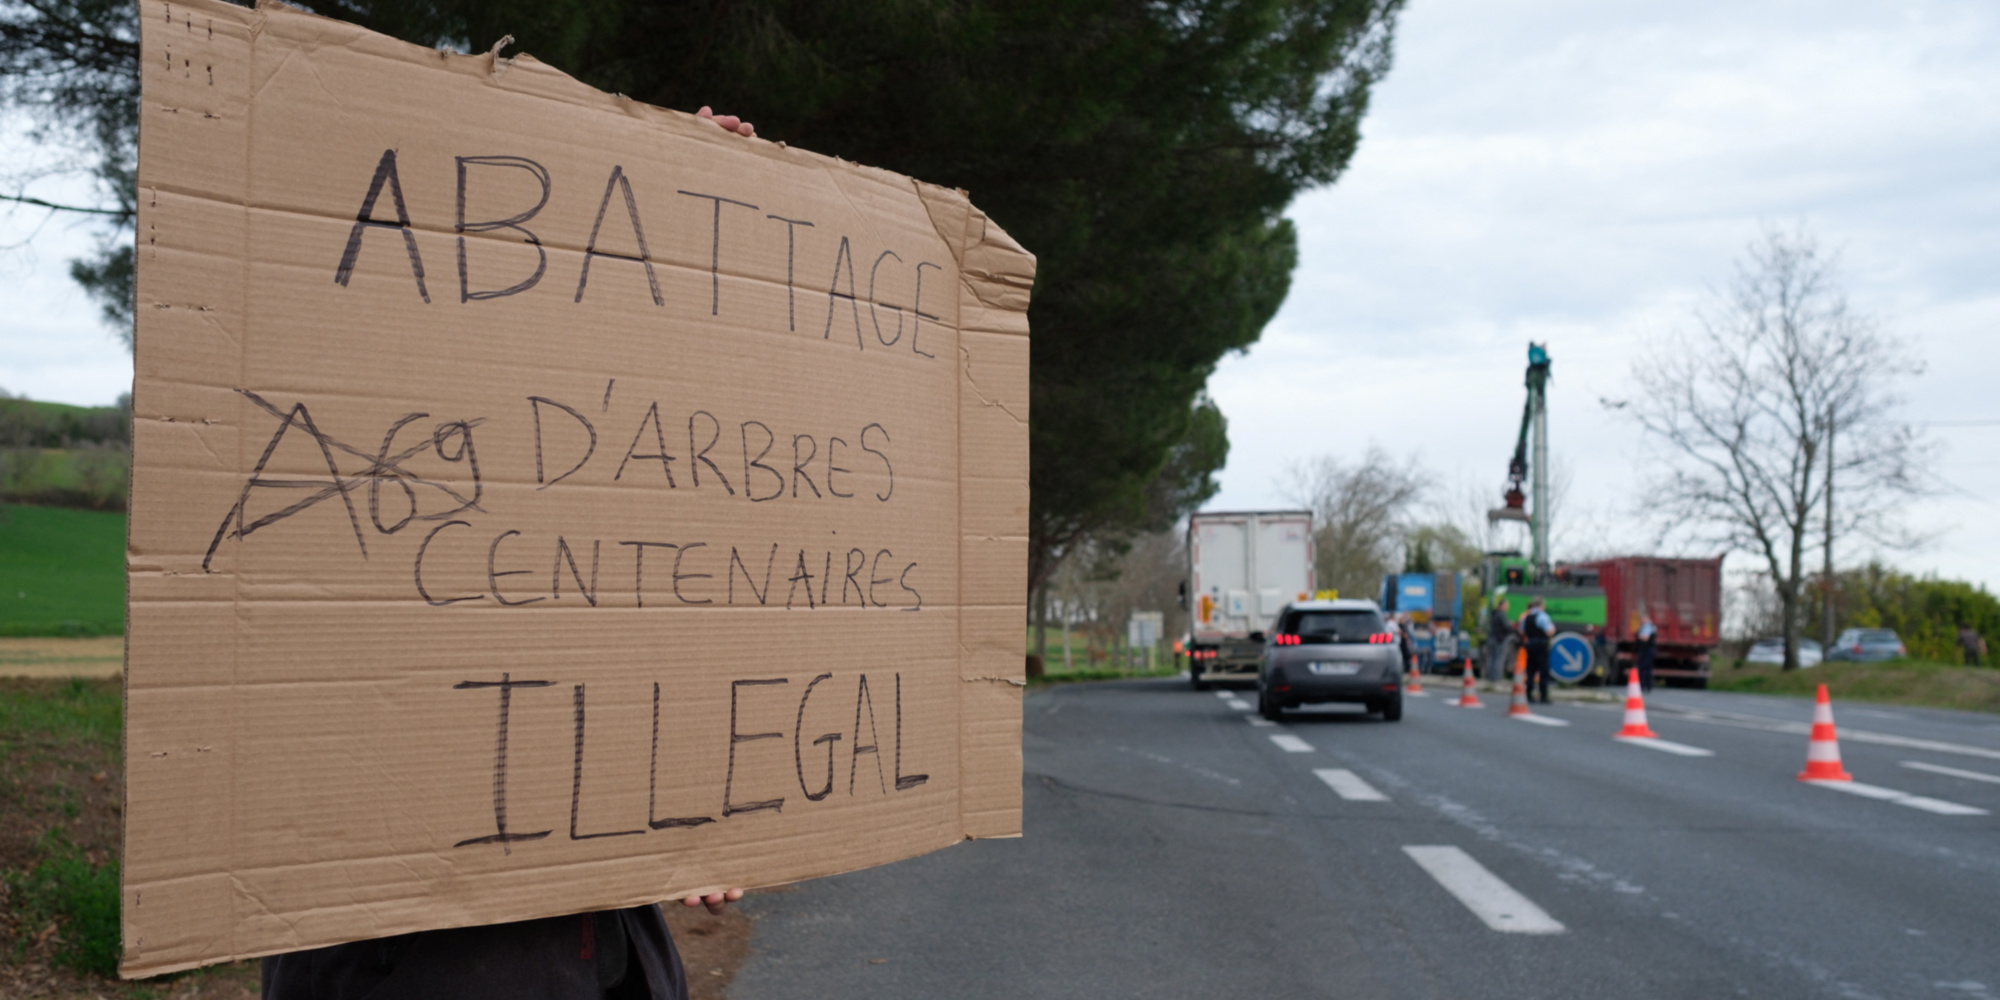 ABATTAGE
A69 D'ARBRES
CENTENAIRES
ILLEGAL